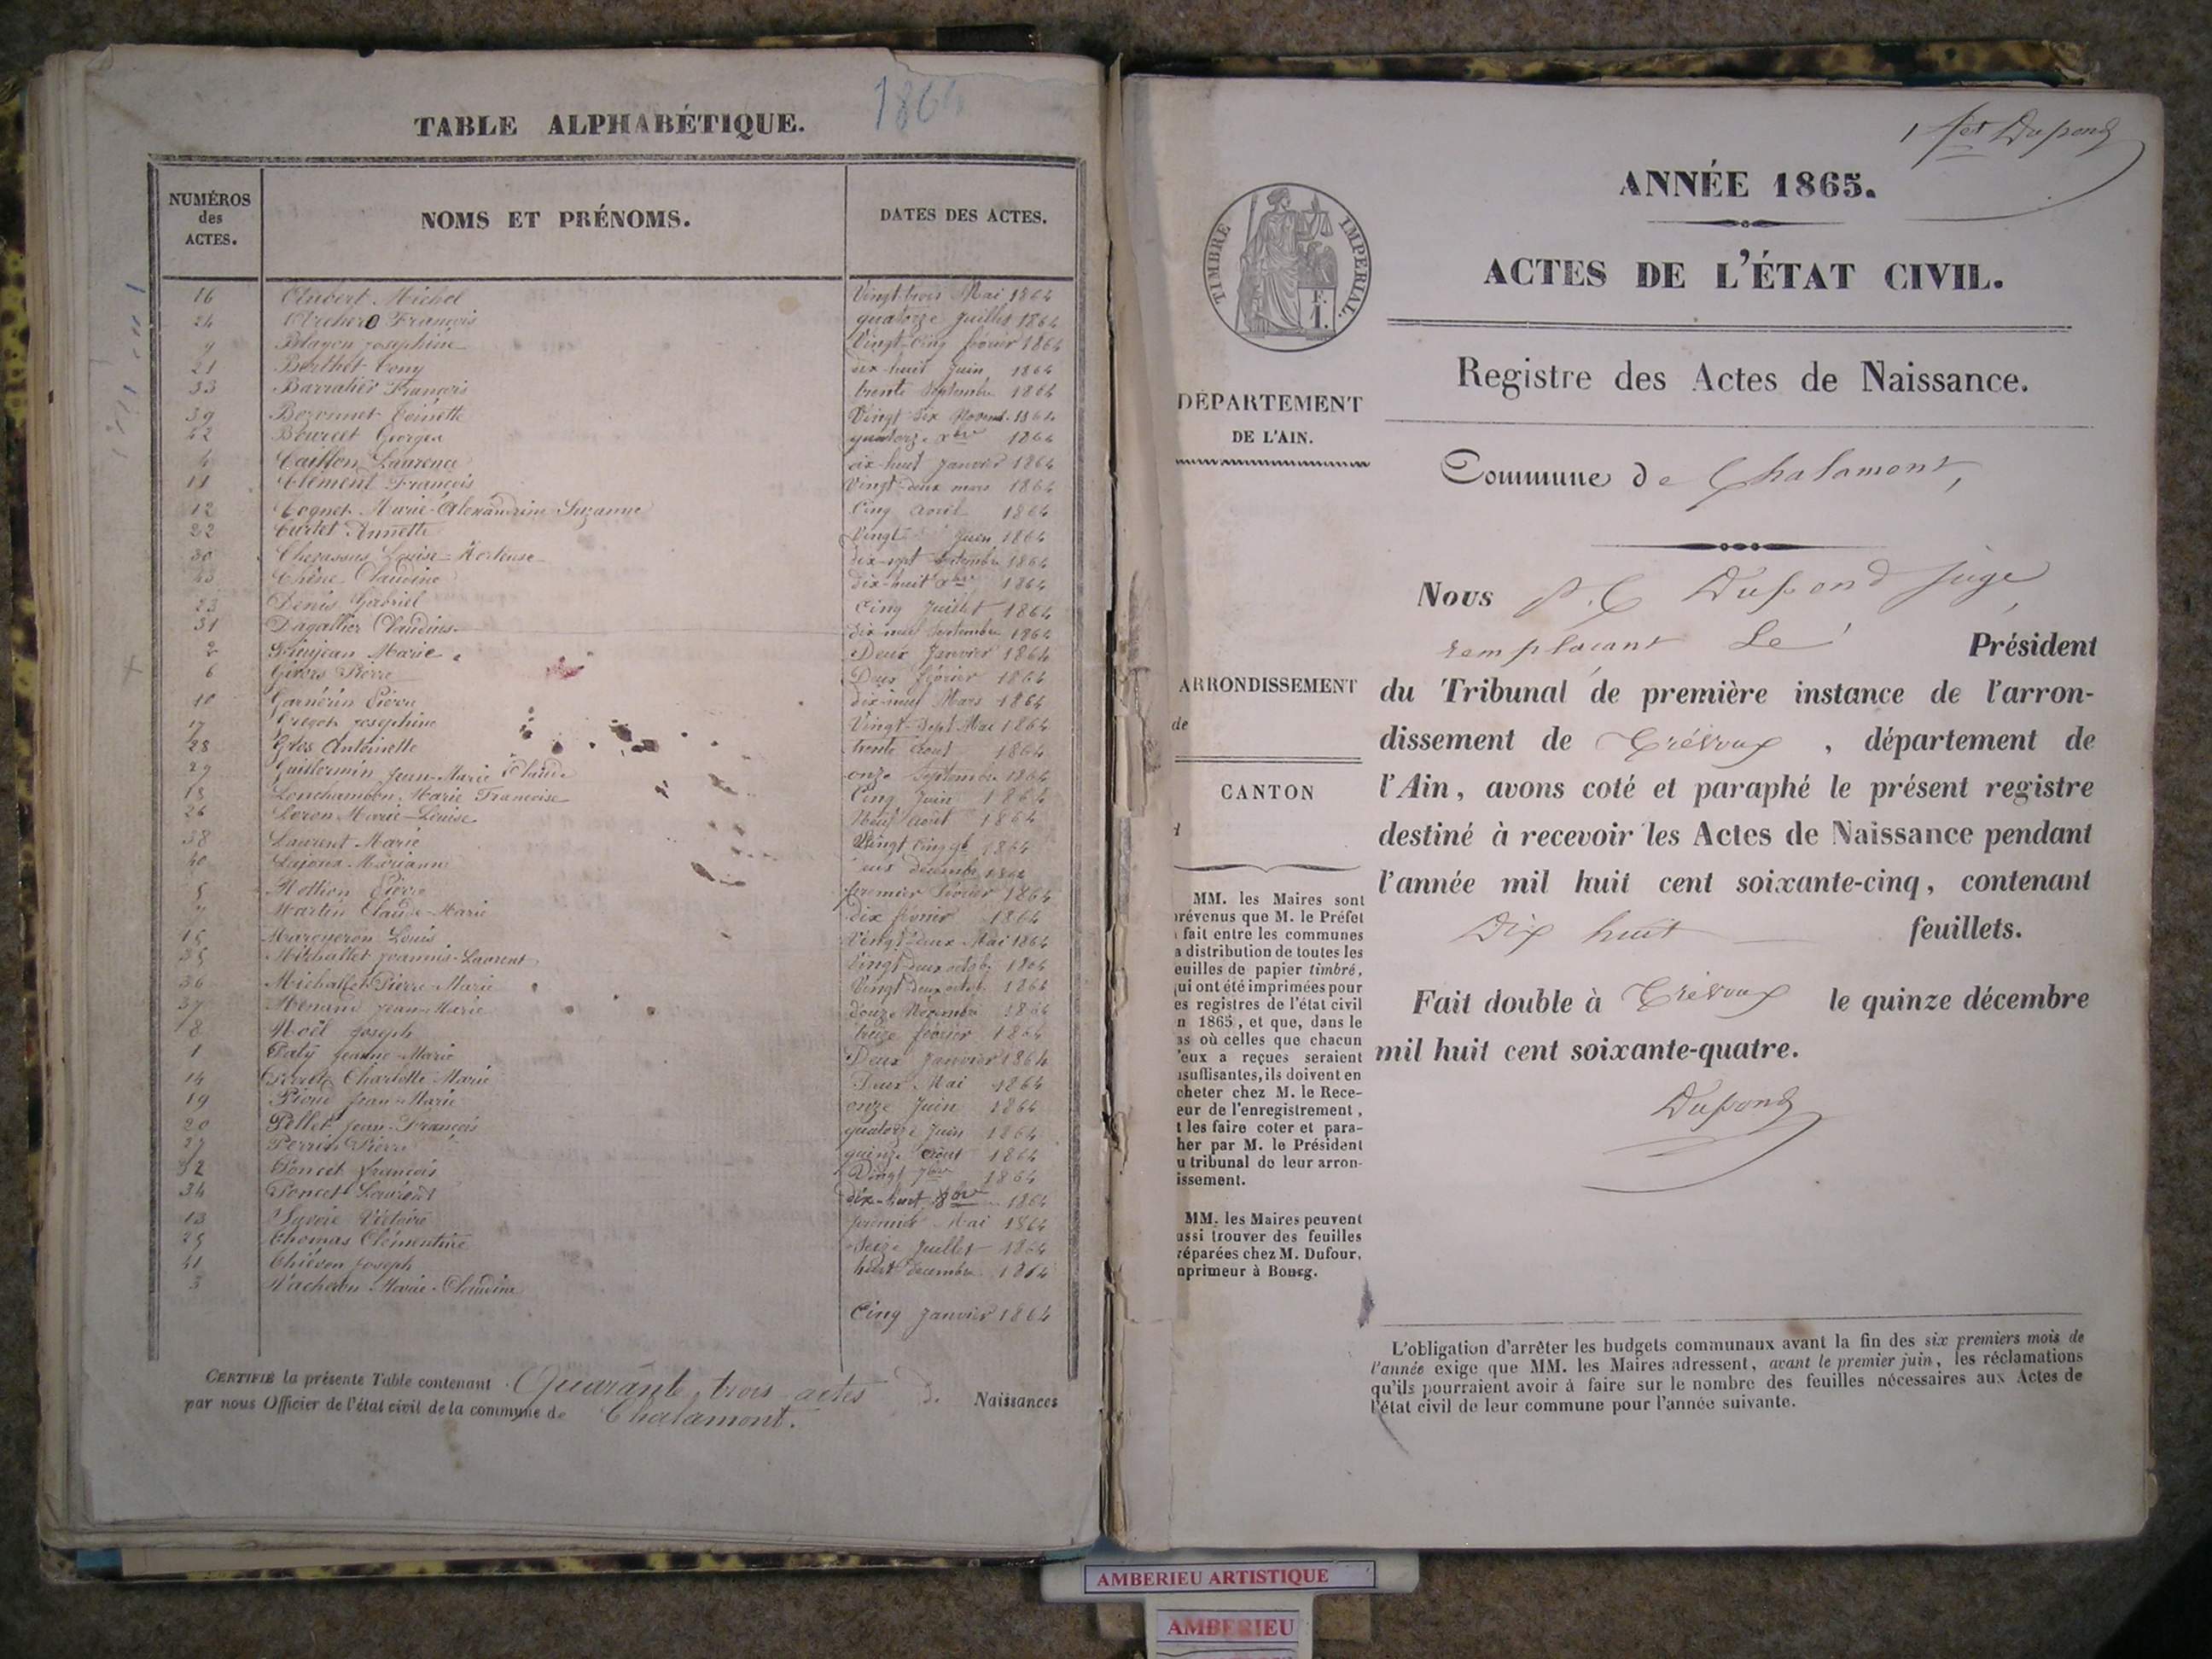 1864
TABLE ALPHABÉTIQUE.
NUMÉROS des ACTES.
NOMS ET PRÉNOMS.
DATES DES ACTES.
16 Aubert Michel Vingt trois Mai 1864
24 François quatorze Juillet 1864
9 Blayon Joséphine Vingt-Cinq février 1864
21 Berthet Tony dix-huit Juin 1864
33 Barratier François trente Septembre 1864
39 Bozonnet Toinette Vingt Six Novemb. 1864
42 Bourcet Georges quatorze Xbre 1864
4 Caillon Laurence dix-huit Janvier 1864
11 Clément François Vingt-deux mars 1864
12 Cognet Marie-Alexandrine-Suzanne Cinq Avril 1864
22 Curtet Annette Vingt Juin 1864
30 Chevassus Louise-Hortense dix-sept Septembre 1864
43 Chêne Claudine dix-huit Xbre 1864
23 Denis Gabriel Cinq Juillet 1864
31 Dagallier Claudius dix-neuf Septembre 1864
2 Marie Deux Janvier 1864
6 Givors Pierre Deux février 1864
10 Garnérin Pierre dix-neuf Mars 1864
17 Gregot Joséphine Vingt-Sept Mai 1864
28 Gros Antoinette trente Aout 1864
29 Guillermin Jean-Marie Claude onze Septembre 1864
18 Lonchambon Marie Françoise Cinq Juin 1864
26 Loron Marie-Louise Neuf Aout 1864
38 Laurent Marie Vingt Cinq 9b 1864
40 Lajoux Mariann décembre 1864
5 Pierre premier février 1864
7 Martin Claude-Marie Dix février 1864
15 Margueron Louis Vingt-deux Mai 1864
35 Michallet Joannis-Laurent Vingt deux octob. 1864
36 Michallet Pierre-Marie Vingt deux octob. 1864
37 Menand Jean-Marie douze Novembre 1864
8 Noël Joseph treize février 1864
1 Paty Jeanne-Marie Deux Janvier 1864
14 Perret Charlotte Marie Deux Mai 1864
19 Pioud Jean-Marie onze Juin 1864
20 Pellet Jean-François quatorze Juin 1864
27 Perrin Pierre quinze Aout 1864
32 Poncet François Vingt 7bre 1864
34 Poncet Laurent dix-huit 8bre 1864
13 Savoie Victoire premier Mai 1864
25 Thomas Clémentine Seize Juillet 1864
41 Thiévon Joseph huit décembre 1864
3 Vachon Marie-Claudine Cinq Janvier 1864
CERTIFIÉ la présente Table contenant Quarante trois actes de Naissances
par nous Officier de l'état civil de la commune de Chalamont.
1 fet Dupond
ANNÉE 1865.
TIMBRE IMPERIAL.
F.
1.
ACTES DE L'ÉTAT CIVIL.
Registre des Actes de Naissance.
DÉPARTEMENT
DE L'AIN.
Commune de Chalamont,
Nous P. C Dupond juge
remplacant Le Président
ARRONDISSEMENT
de
du Tribunal de première instance de l'arron-
dissement de Trévoux , département de
CANTON
l'Ain, avons coté et paraphé le présent registre
destiné à recevoir les Actes de Naissance pendant
l'année mil huit cent soixante-cinq, contenant
Dix huit feuillets.
Fait double à Trévoux le quinze décembre
mil huit cent soixante-quatre.
Dupond
MM. les Maires sont
révenus que M. le Préfet
fait entre les communes
a distribution de toutes les
euilles de papier timbré,
ui ont été imprimées pour
es registres de l'état civil
n 1865, et que, dans le
as où celles que chacun
'eux a reçues seraient
suffisantes, ils doivent en
cheter chez M. le Rece-
eur de l'enregistrement,
t les faire coter et para-
her par M. le Président
u tribunal de leur arron-
issement.
MM. les Maires peuvent
ussi trouver des feuilles
réparées chez M. Dufour,
mprimeur à Bourg.
L'obligation d'arrêter les budgets communaux avant la fin des six premiers mois de
l'année exige que MM. les Maires adressent, avant le premier juin, les réclamations
qu'ils pourraient avoir à faire sur le nombre des feuilles nécessaires aux Actes de
l'état civil de leur commune pour l'année suivante.
AMBERIEU ARTISTIQUE
AMBERIEU